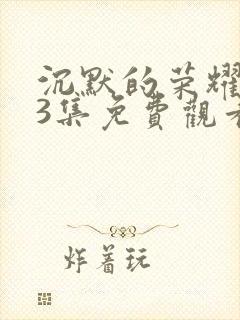 沉默的荣耀
3集免費觀看
炸着玩